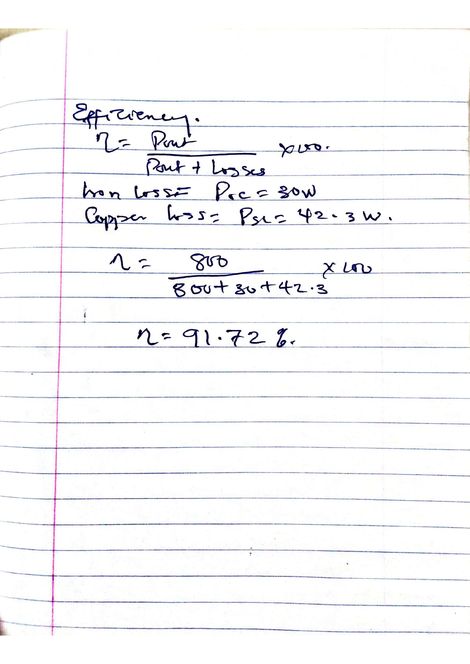 Efficiency.
η = Pout / Pout + Losses × 100.
Iron Loss = Poc = 30W
Copper loss = Psc = 42.3 W.
η = 800 / 800 + 30 + 42.3 × 100
η = 91.72 %.